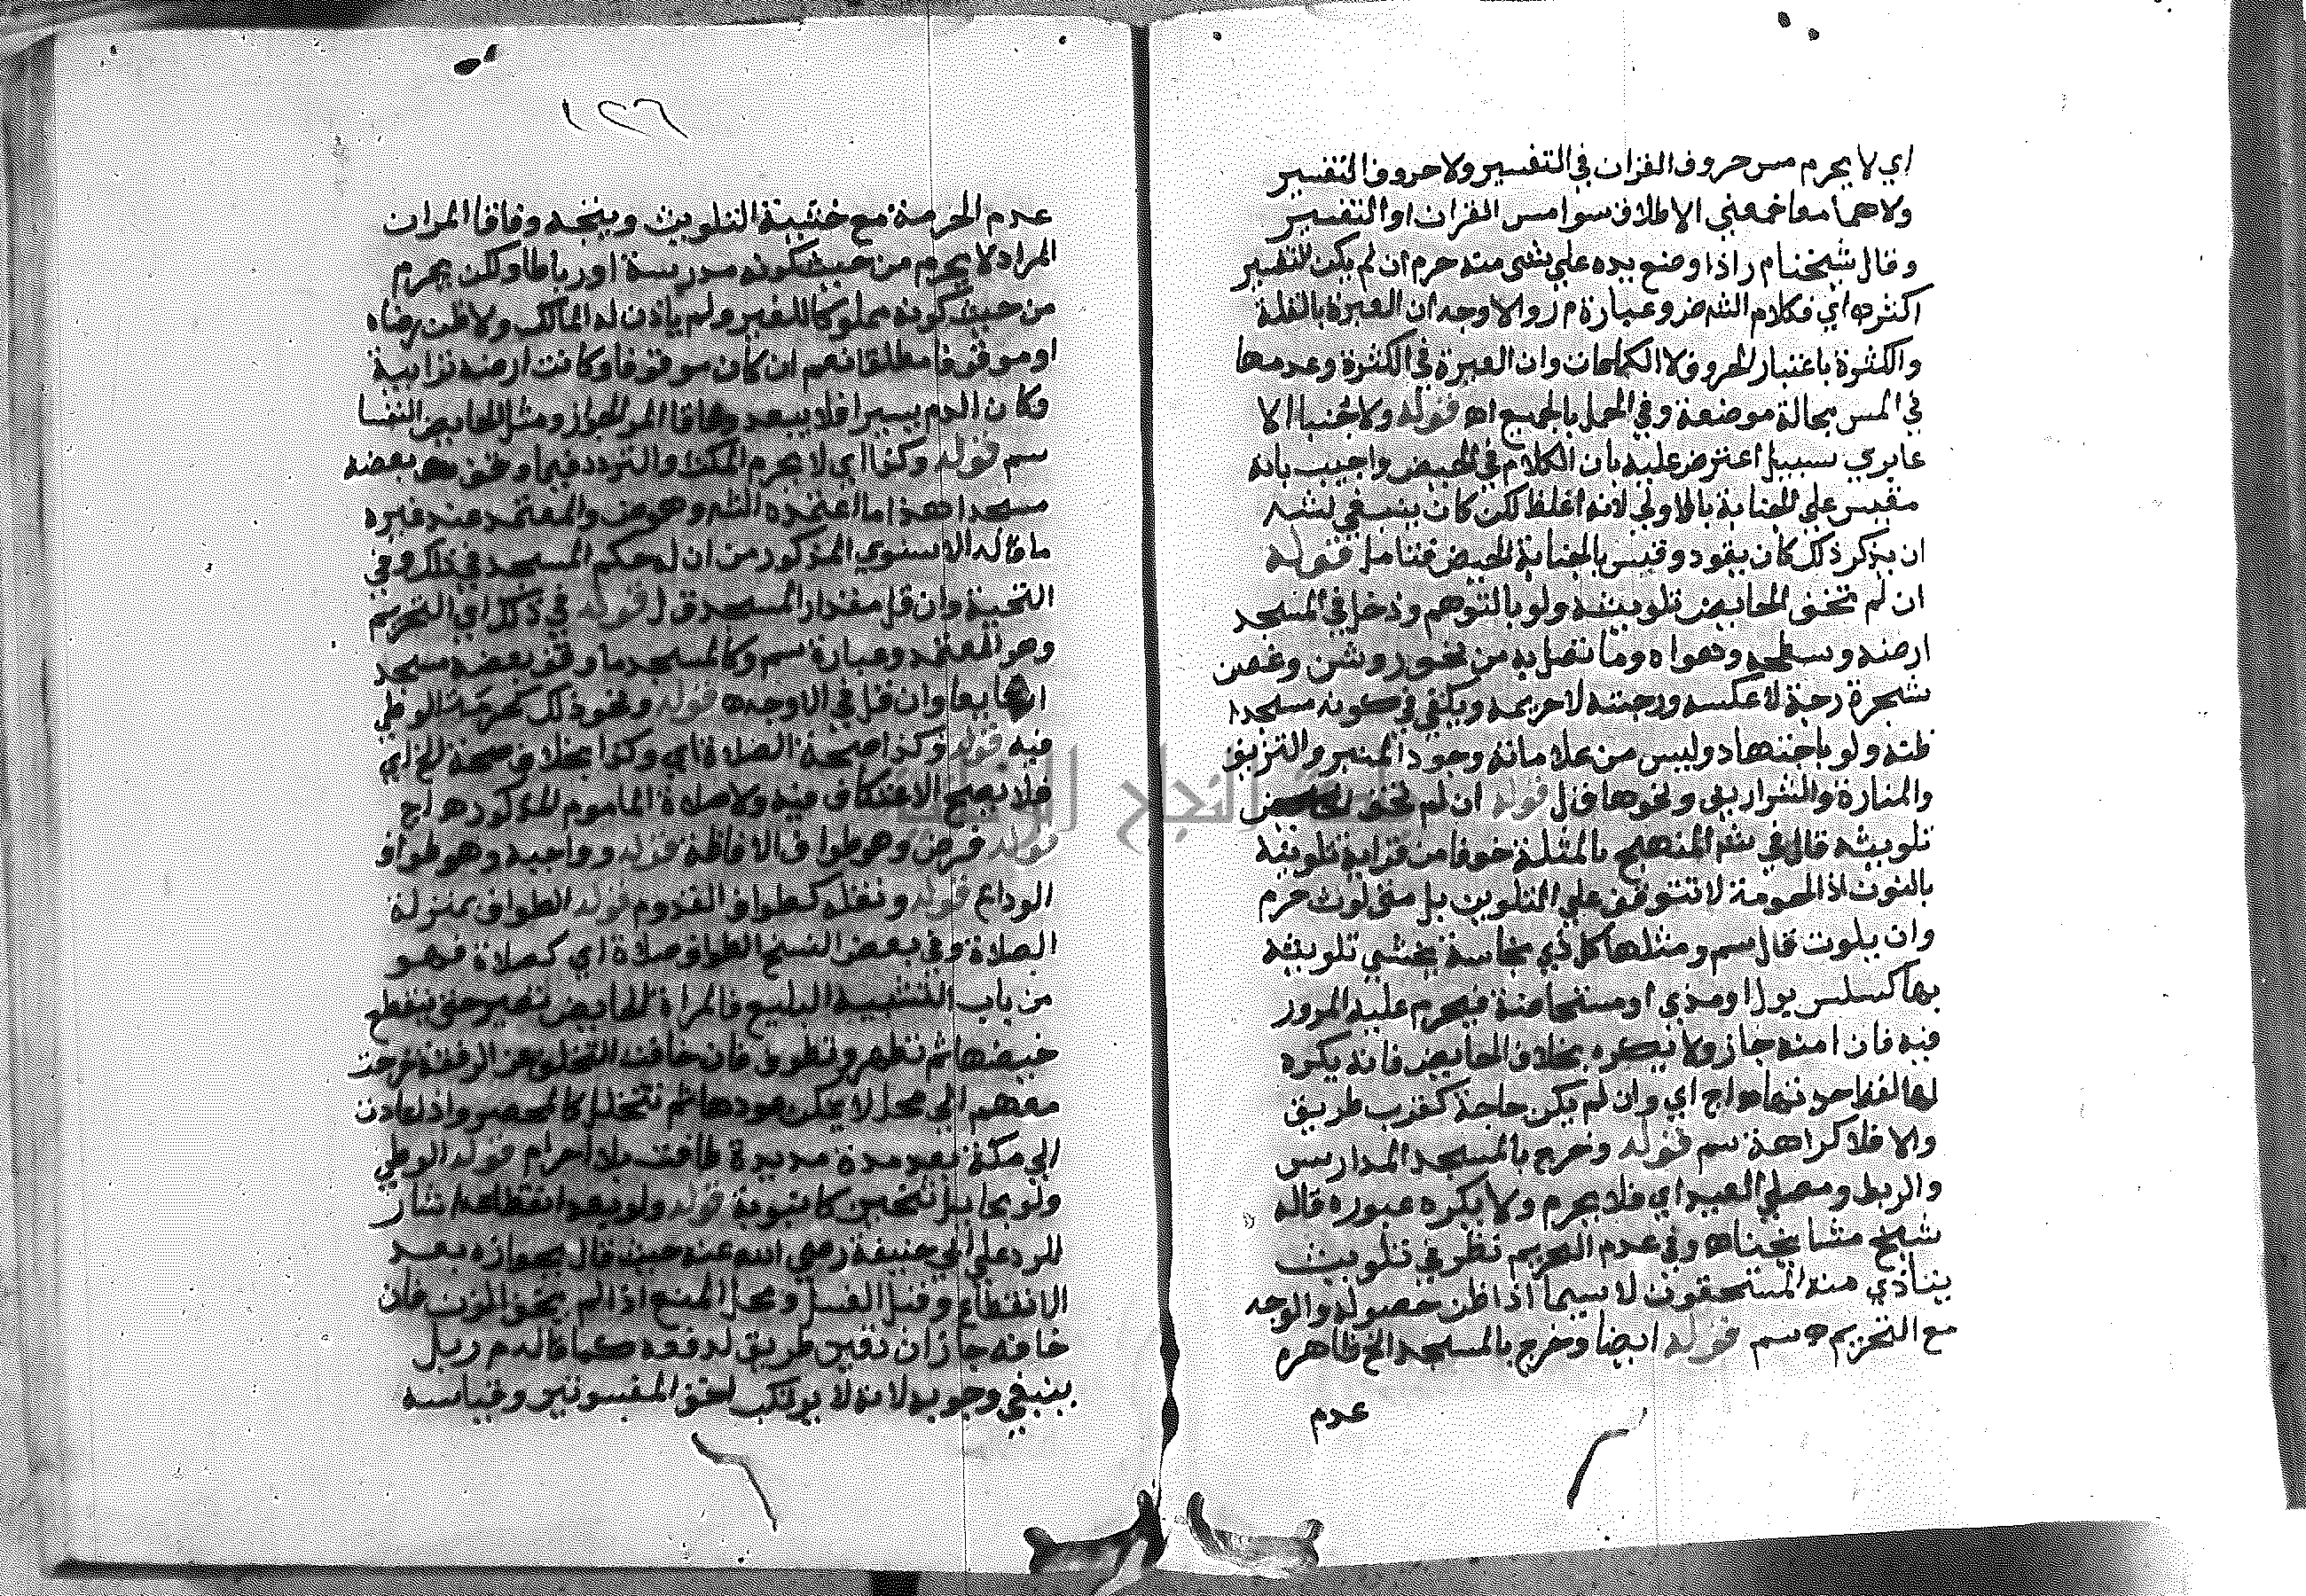 اي لا يحرم مس حروف القران في التفسير ولا حروف التفسير
ولا هما معا فمعني الاطلاق سوا مس القران او التفسير
وقال شيخنا م ر اذا وضع يده علي شي منه حرم ان لم يكن التفسير
اكثر ه اي فكلام الش ض وعبارة م ر والاوجه ان العبرة بالقلة
والكثرة باعتبار الحروف لا الكلمات وان العبرة في الكثرة وعدمها
في المس بحالة موضعه وفي الحمل بالجميع اه قوله ولا جنبا الا
عابري سبيل اعترض عليه بان الكلام في الحيض واجيب بانه
مقيس علي الجنابة بالاولي لانه اغلظ لكن كان ينبغي للش
ان يذكر ذلك كان يقود وقيس بالجنابة الحيض فتامل قوله
ان لم تخف الحايض تلويثه ولو بالتوهم ودخل في المسجد
ارضه وسطحه وهواه وما تصل به من نحو روشن وغصن
شجرة رحبة لا عكسه ورحبته لا حريمه ويكفي في كونه مسجدا
ظنه ولو باجتهاد وليس من علاماته وجود المنبر والتزويق
والمنارة والشراريف ونحوها ق ل قوله ان لم تخف الحايض
تلويثه قال في ش المنهج بالمثلثة خوفا من قرابة تلويثه
بالنون اذ الحرمة لا تتوقف علي التلوين بل متي لوث حرم
وان يلوث قال سم ومثلها كل ذي نجاسة يخشي تلويثه
بها كسلس بول او مذي او مستحاضة فيحرم عليه المرور
فيه فان امنه جاز ولا يكره بخلاف الحايض فانه يكره
لها لغلظ حدثها اه ا ج اي وان لم يكن حاجة كقرب طريق
والا فلا كراهة سم قوله وخرج بالمسجد المداريس
والربط ومصلي العيد اي فلا يحرم ولا يكره عبوره قاله
شيخ مشايخنا اه وفي عدم التحريم نظر في تلويث
يتاذي منه المستحقون لا سيما اذا ظن حصوله والوجه
مع التحريم ه سم قوله ايضا وخرج بالمسجد الخ ظاهره
عدم
١٢٦
عدم الحرمة مع خشية التلويث ويتجه وفاقا لم ران
المراد لا يحرم من حيث كونه مدرسة او رباطا ولكن يحرم
من حيث كونه مملوكا للغير ولم ياذن له المالك ولا ظن رضاه
او موقوفا مطلقا نعم ان كان موقوفا وكانت ارضه ترابية
وكان الدم يسيرا فلا يبعد وفاقا لم ر الجواز ومثل الحايض النفسا
سم قوله وكذا اي لا يحرم المكث والتردد فيما وقف بعضه
مسجدا هذا ما اعتمده الش وهو ض والمعتمد عند غيره
ما قاله الاسنوي المذكور من ان له حكم المسجد في ذلك وفي
التحية وان قل مقدار المسجد ق ل قوله في ذلك اي التحريم
وهو المعتمد وعبارة سم وكالمسجد ما وقف بعضه مسجد
شايعا وان قل في الاوجه اه قوله ونحو ذلك كحرمة الوطي
فيه قوله وكذا صحة الصلاة اي وكذا بخلاف صحة الخ اي
فلا يصح الاعتكاف فيه ولا صلاة الماموم المذكور ه ا ج
قوله فرض وهو طواف الافاظة قوله وواجبه وهو طواف
الوداع قوله ونفله كطواف القدوم قوله الطواف بمنزلة
الصلاة وفي بعض النسخ الطواف صلاة اي كصلاة فهو
من باب التشبيه البليغ فالمراة الحايض تصبر حتي ينقطع
حيضها ثم تطهر وتطوف فان خافت التخلف عن الرفقة خرجت
معهم الي محل لا يمكن عودها ثم تتحلل كالمحصر واذا عادت
الي مكة بعد مدة مديدة طافت بلا احرام قوله الوطي
ولو بحايل تخين كانبوبة قوله ولو بعد انقطاعه اشار
للرد علي ابي حنيفة رضي الله عنه حيث قال بجوازه بعد
الانقطاع وقبل الغسل ومحل المنع اذا لم يخف الزنا فان
خافه جاز ان تعين طريق لدفعه كما قاله م ر بل
ينبغي وجوبه لانه لا يرتكب اخف المفسدتين وقياسه